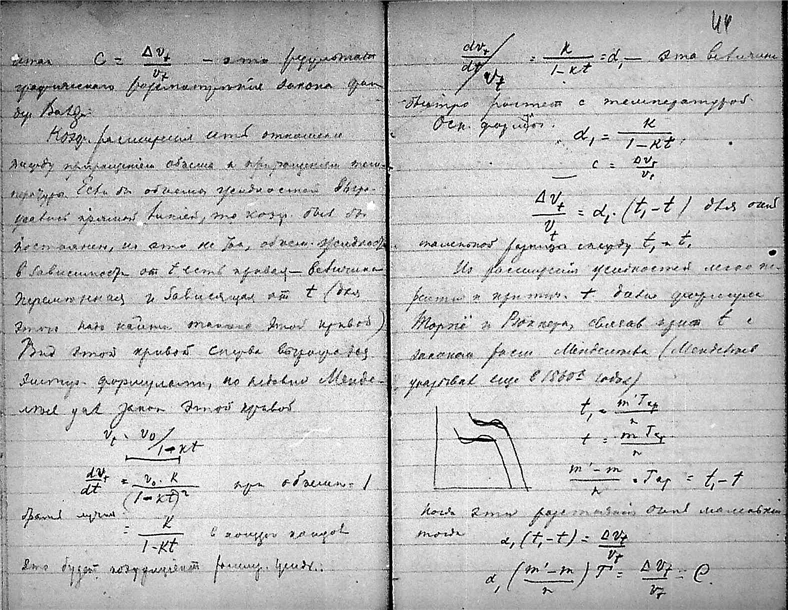 C = Δv_t / v_t — это результат
графического рассмотрения закона фан
дер Ваальса
Коэф. расширения есть отношение
между приращением объема к приращению тем-
пературы. Если бы объемы жидкостей выра-
жались прямой линией, то коэф. был бы
постоянен, но это не так, объем жидкости
в зависимости от t есть кривая — величина
переменная и зависящая от t (для
этого надо найти этой кривой)
Вид этой кривой сперва выражался
формулами, но недавно Менде-
леев дал закон этой кривой
v_t = v_0 / 1-кt
dv_t / dt = v_0 · к / (1-кt)²  при объеме = 1
= к / 1-кt
это будет коэффициент расшир. жидк.
44
dv_t / dt / v_t = к / 1-кt = α₁ — эта величина
быстро растет с температурой
Осн. формул. α₁ = к / 1-кt
C = Δv_t / v_t
Δv_t / v_t = α₁ · (t₁-t) для очень
маленькой разницы между t₁ и t.
Из расширения жидкостей легко пе-
рейти к критич. t. Дана формула
Торпё и Рюккера, связав крит t с
законом расш Менделеева (Менделеев
указывал еще в 1860х годах)
t₁ = m'Tкр / n
t = mTкр / n
m'-m / n · Tкр = t₁-t
когда эти расстояния очень маленькие
тогда α₁(t₁-t) = Δv_t / v_t
α₁ (m'-m / n) T = Δv_t / v_t = C.